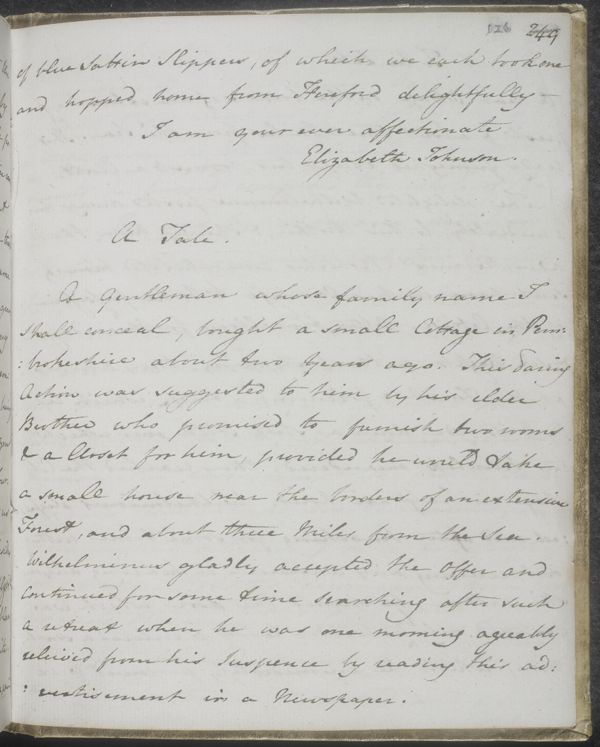 126 249
of blue Sattin Slippers, of which we each took one
and hopped home from Hereford delightfully—
I am your ever affectionate
Elizabeth Johnson.
A Tale.
A Gentleman whose family name I
shall conceal, bought a small Cottage in Pem:
:brokeshire about two Years ago. This daring
Action was suggested to him by his elder
Brother who promised to furnish two rooms
& a Closet for him, provided he would take
a small house near the borders of an extensive
Forest, and about three Miles from the Sea.
Wilhelminus gladly accepted the Offer and
continued for some time searching after such
a retreat when he was one morning agreably
releived from his Suspence by reading this ad:
:vertisement in a Newspaper.